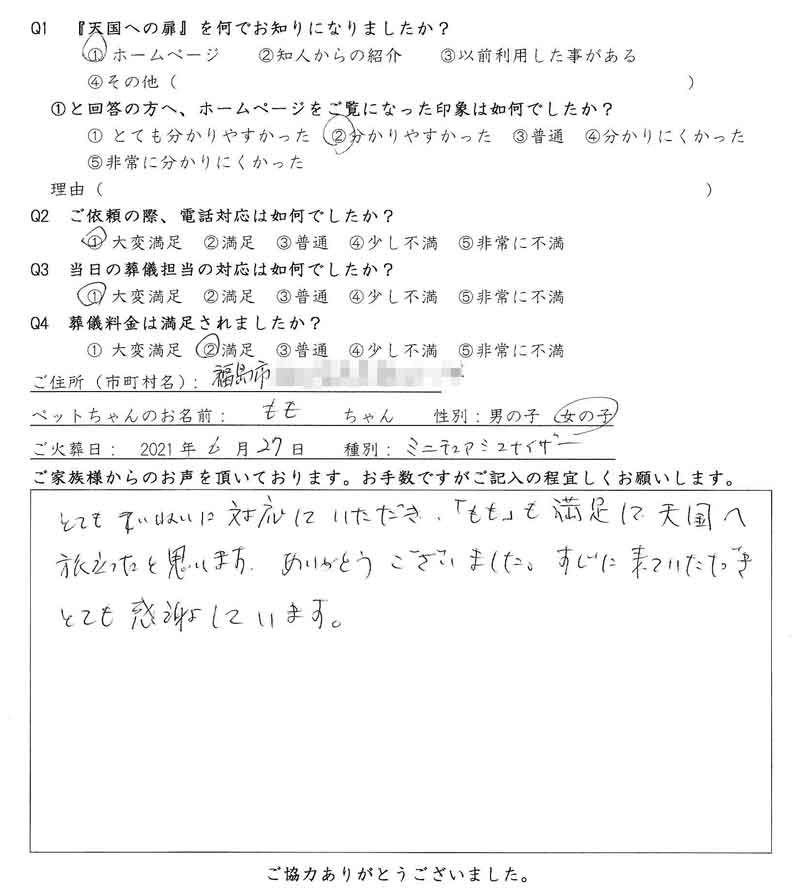 Q1 『天国への扉』を何でお知りになりましたか？
① ホームページ ②知人からの紹介 ③以前利用した事がある
④その他（ ）
①と回答の方へ、ホームページをご覧になった印象は如何でしたか？
① とても分かりやすかった ②分かりやすかった ③普通 ④分かりにくかった
⑤非常に分かりにくかった
理由（ ）
Q2 ご依頼の際、電話対応は如何でしたか？
① 大変満足 ②満足 ③普通 ④少し不満 ⑤非常に不満
Q3 当日の葬儀担当の対応は如何でしたか？
① 大変満足 ②満足 ③普通 ④少し不満 ⑤非常に不満
Q4 葬儀料金は満足されましたか？
① 大変満足 ②満足 ③普通 ④少し不満 ⑤非常に不満
ご住所（市町村名）：福島市
ペットちゃんのお名前： もも ちゃん 性別：男の子 女の子
ご火葬日： 2021 年 6 月 27 日 種別：ミニチュアシュナイザー
ご家族様からのお声を頂いております。お手数ですがご記入の程宜しくお願いします。
とても ていねいに 対応して いただき、「もも」も 満足して 天国へ
旅立ったと思います。ありがとう ございました。すぐに 来ていただき
とても 感謝しています。
ご協力ありがとうございました。